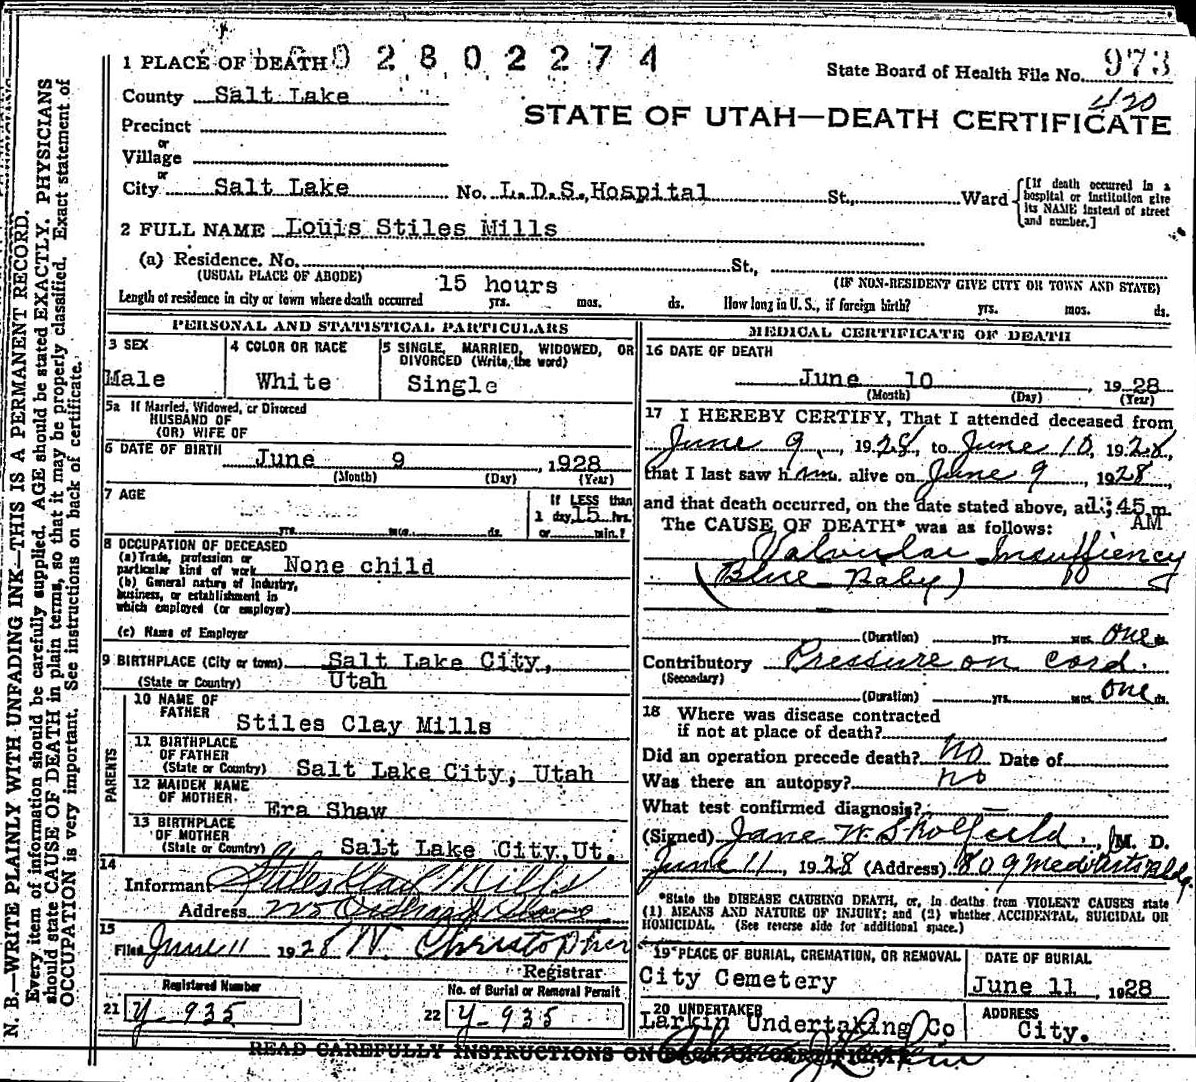 1 PLACE OF DEATH 02802274
State Board of Health File No. 973
420
County Salt Lake
STATE OF UTAH—DEATH CERTIFICATE
Precinct
or
Village
or
City Salt Lake No. L.D.S.Hospital St., Ward
[If death occurred in a hospital or institution give its NAME instead of street and number.]
2 FULL NAME Louis Stiles Mills
(a) Residence. No. St.,
(USUAL PLACE OF ABODE) (IF NON-RESIDENT GIVE CITY OR TOWN AND STATE)
15 hours
Length of residence in city or town where death occurred yrs. mos. ds. How long in U.S., if foreign birth? yrs. mos. ds.
PERSONAL AND STATISTICAL PARTICULARS
3 SEX
Male
4 COLOR OR RACE
White
5 SINGLE, MARRIED, WIDOWED, OR
DIVORCED (Write, the word)
Single
5a If Married, Widowed, or Divorced
HUSBAND OF
(OR) WIFE OF
6 DATE OF BIRTH June 9, 1928
(Month) (Day) (Year)
7 AGE
yrs. mos. ds.
If LESS than
1 day, 15 hrs.
or min.?
8 OCCUPATION OF DECEASED
(a) Trade, profession or
particular kind of work None child
(b) General nature of Industry,
business, or establishment in
which employed (or employer)
(c) Name of Employer
9 BIRTHPLACE (City or town) Salt Lake City,
(State or Country) Utah
PARENTS
10 NAME OF
FATHER Stiles Clay Mills
11 BIRTHPLACE
OF FATHER
(State or Country) Salt Lake City, Utah
12 MAIDEN NAME
OF MOTHER. Era Shaw
13 BIRTHPLACE
OF MOTHER
(State or Country) Salt Lake City,Ut.
14
Informant Stiles Clay Mills
Address 225
15
Filed June 11 1928 N. Christopher
Registrar
Registered Number
21 Y-935
No. of Burial or Removal Permit
22 Y-935
MEDICAL CERTIFICATE OF DEATH
16 DATE OF DEATH
June 10, 1928
(Month) (Day) (Year)
17 I HEREBY CERTIFY, That I attended deceased from
June 9, 1928, to June 10, 1928,
that I last saw him alive on June 9 1928,
and that death occurred, on the date stated above, at 1;45 m.
AM
The CAUSE OF DEATH* was as follows:
Valvular Insuffiency
(Blue Baby)
(Duration) yrs. mos. one ds.
Contributory Pressure on cord.
(Secondary)
(Duration) yrs. mos. one ds.
18 Where was disease contracted
if not at place of death?
Did an operation precede death? No Date of
Was there an autopsy? no
What test confirmed diagnosis? —
(Signed) Jane W. Skolfield, M. D.
June 11, 1928 (Address) 809 Med Arts Bldg.
*State the DISEASE CAUSING DEATH, or, in deaths from VIOLENT CAUSES state
(1) MEANS AND NATURE OF INJURY; and (2) whether ACCIDENTAL, SUICIDAL OR
HOMICIDAL. (See reverse side for additional space.)
19 PLACE OF BURIAL, CREMATION, OR REMOVAL
City Cemetery
DATE OF BURIAL
June 11, 1928
20 UNDERTAKER
Larkin Undertaking Co
ADDRESS
City.
READ CAREFULLY INSTRUCTIONS ON BACK OF CERTIFICATE
N. B.—WRITE PLAINLY WITH UNFADING INK—THIS IS A PERMANENT RECORD.
Every item of information should be carefully supplied. AGE should be stated EXACTLY. PHYSICIANS
should state CAUSE OF DEATH in plain terms, so that it may be properly classified. Exact statement of
OCCUPATION is very important. See instructions on back of certificate.